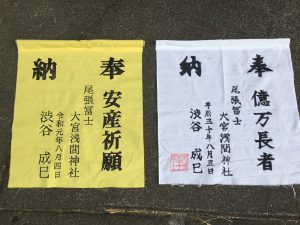 奉納
安産祈願
尾張冨士
大宮浅間神社
令和元年八月四日
渋谷 成巳
奉納
億万長者
尾張冨士
大宮浅間神社
平成三十年八月五日
渋谷 成巳